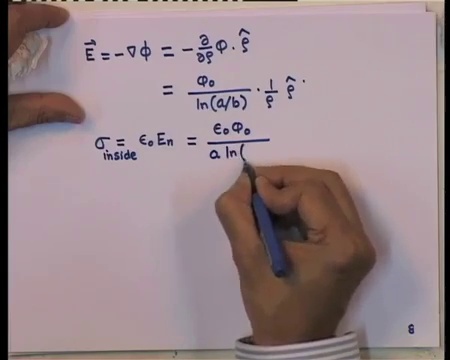 E⃗ = -∇ϕ = - ∂/∂ρ φ · ρ̂
= φ₀/ln(a/b) · 1/ρ ρ̂ ·
σ inside = ε₀ Eₙ = ε₀φ₀/a ln(
8